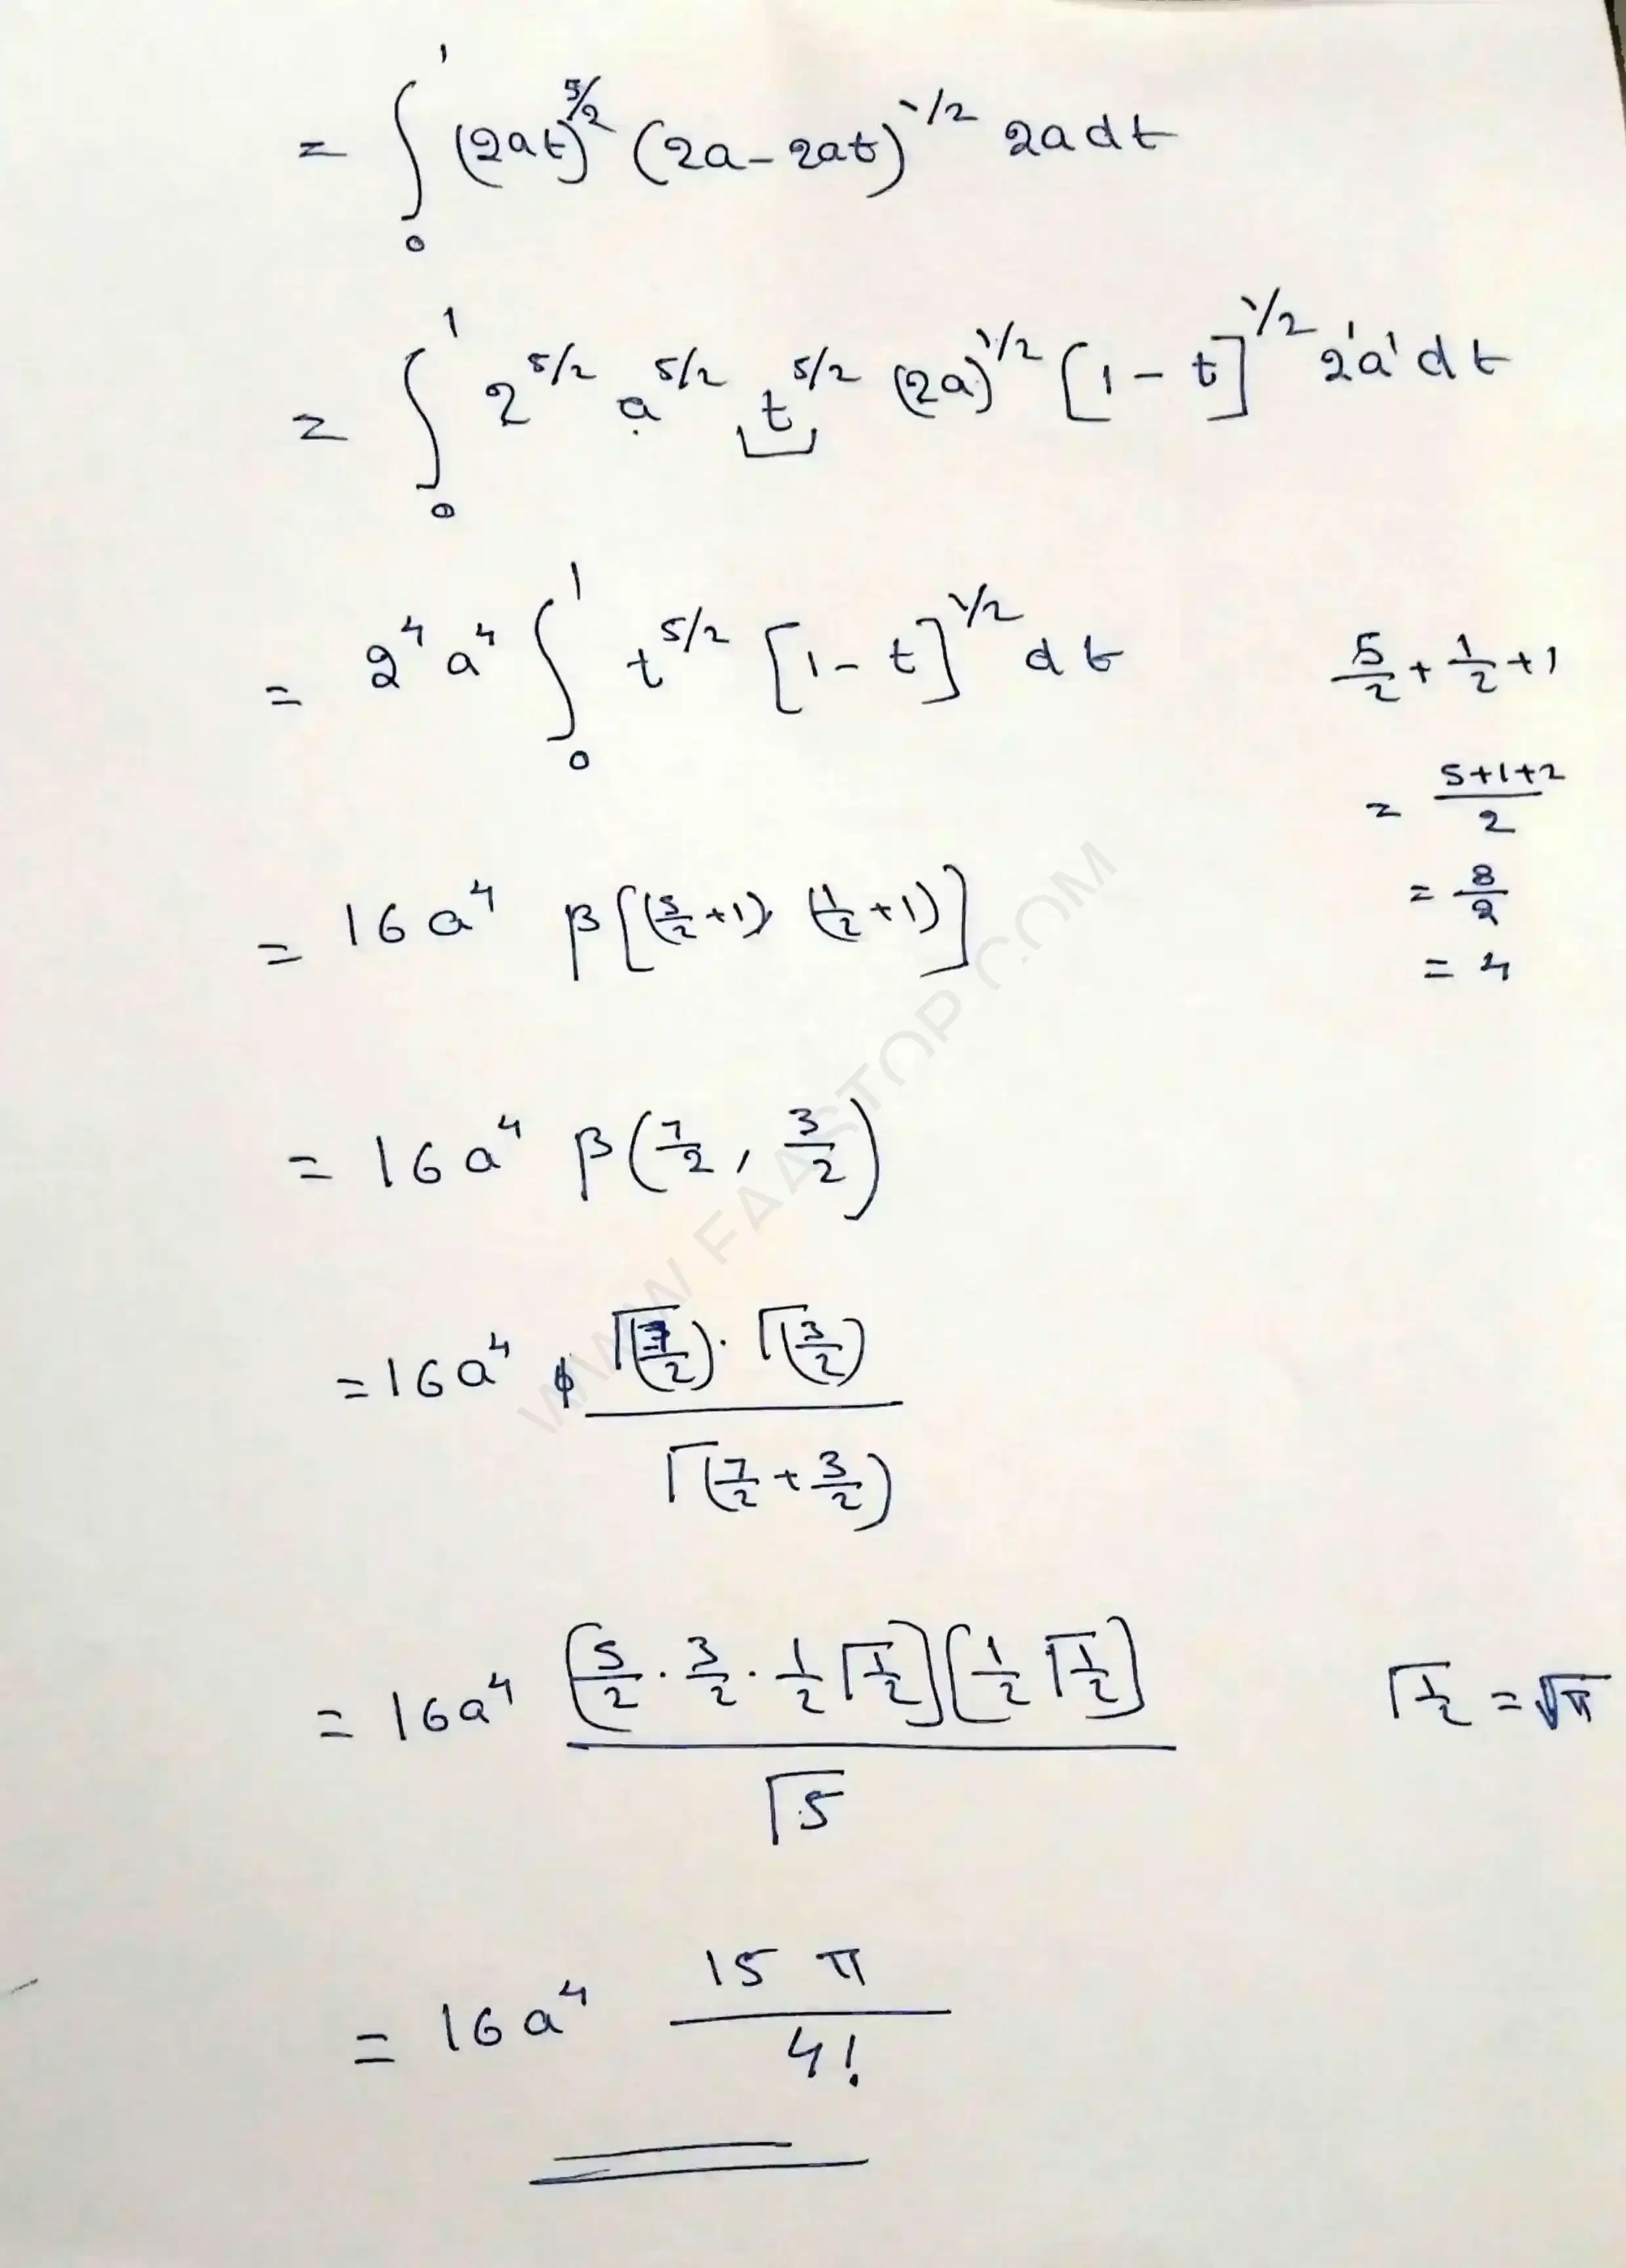 = ∫₀¹ (2at)^{5/2} (2a - 2at)^{1/2} 2a dt
= ∫₀¹ 2^{5/2} a^{5/2} t^{5/2} (2a)^{1/2} [1 - t]^{1/2} 2¹a¹ dt
= 2⁴ a⁴ ∫₀¹ t^{5/2} [1 - t]^{1/2} dt
5/2 + 1/2 + 1
= (5+1+2)/2
= 8/2
= 4
= 16a⁴ β[(5/2 + 1), (1/2 + 1)]
= 16a⁴ β(7/2, 3/2)
= 16a⁴ Γ(7/2) · Γ(3/2) / Γ(7/2 + 3/2)
= 16a⁴ [5/2 · 3/2 · 1/2 Γ1/2] [1/2 Γ1/2] / Γ5
Γ1/2 = √π
= 16a⁴ 15 π / 4!
WWW.FAASTOP.COM